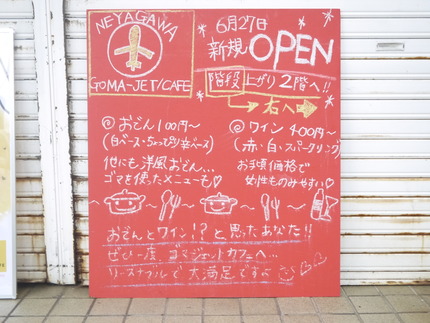 NEYAGAWA
GOMA-JET/CAFE
6月27日
新規OPEN
階段上がり2階へ!!
右へ
◎おでん100円〜
(白ベース・ちょっぴり辛ベース)
他にも洋風おでん...
ゴマを使ったメニューも♡
◎ワイン 400円〜
(赤・白・スパークリング)
お手頃価格で
女性ものみやすい♡
おでんとワイン!?と思ったあなた!!
ぜひ一度、ゴマジェットカフェへ...
リーズナブルで大満足ですよ♡♡